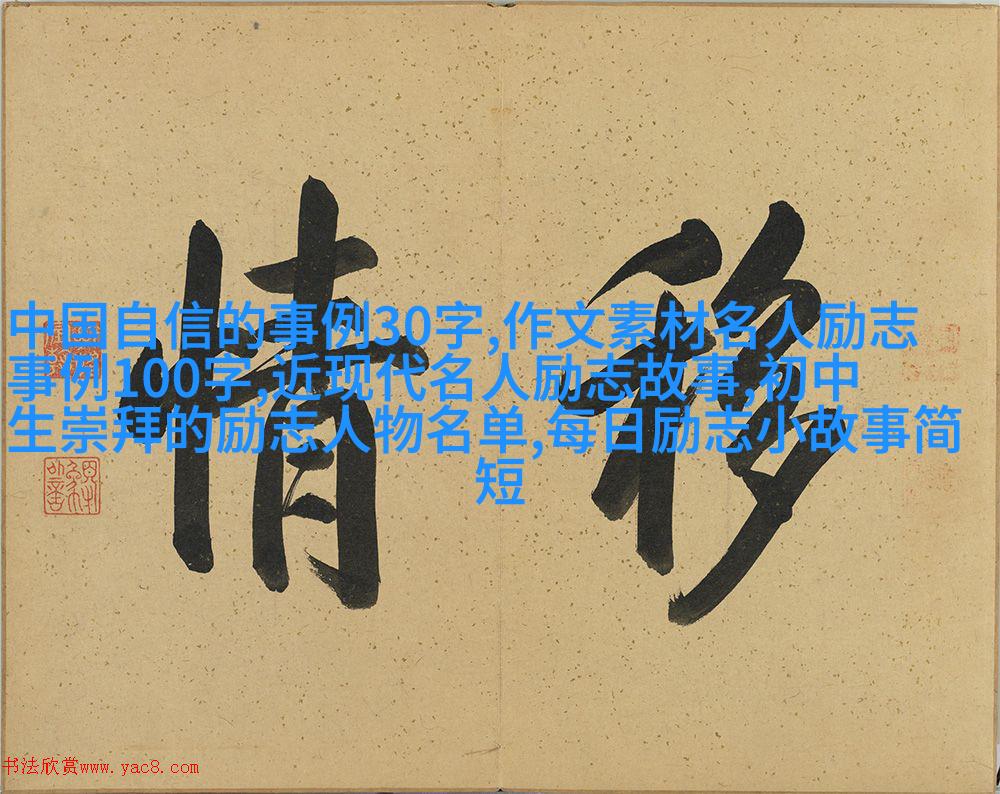 移情
中国自信的事例30字,作文素材名人励志
事例100字,近现代名人励志故事,初中
生崇拜的励志人物名单,每日励志小故事简
短
书法欣赏www.yac8.com